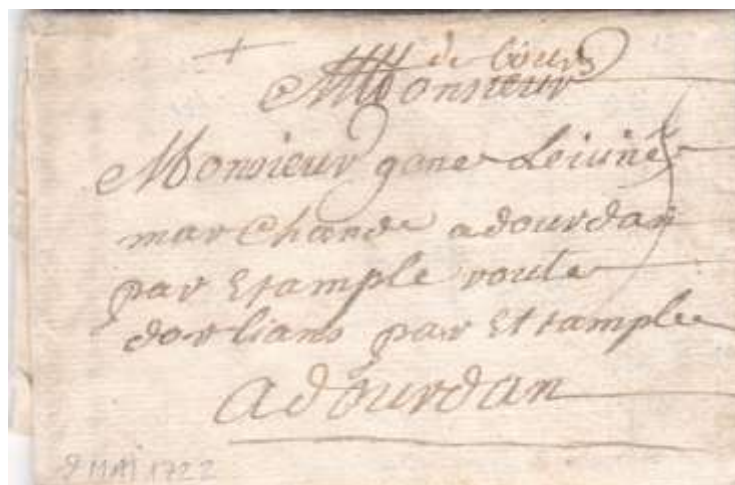 de Tours
Monsieur
Monsieur gone Leiune
marchand adourdan
par Etample route
dorlians par Ettample
adourdan
9 MAI 1722